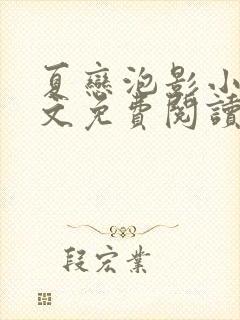 夏戀泡影小
文免費閱讀
段宏業